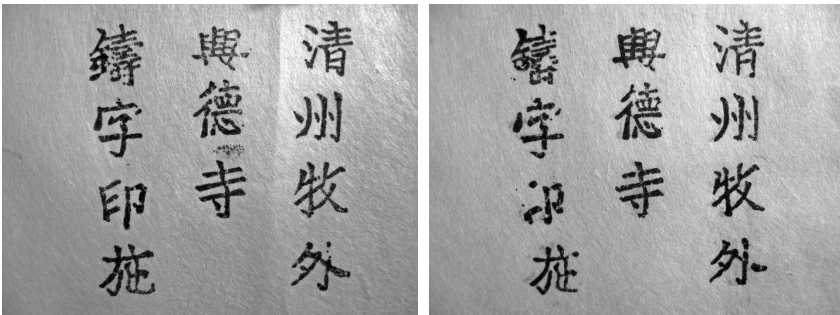 清州牧外
興德寺
鑄字印施
清州牧外
興德寺
鑄字印施